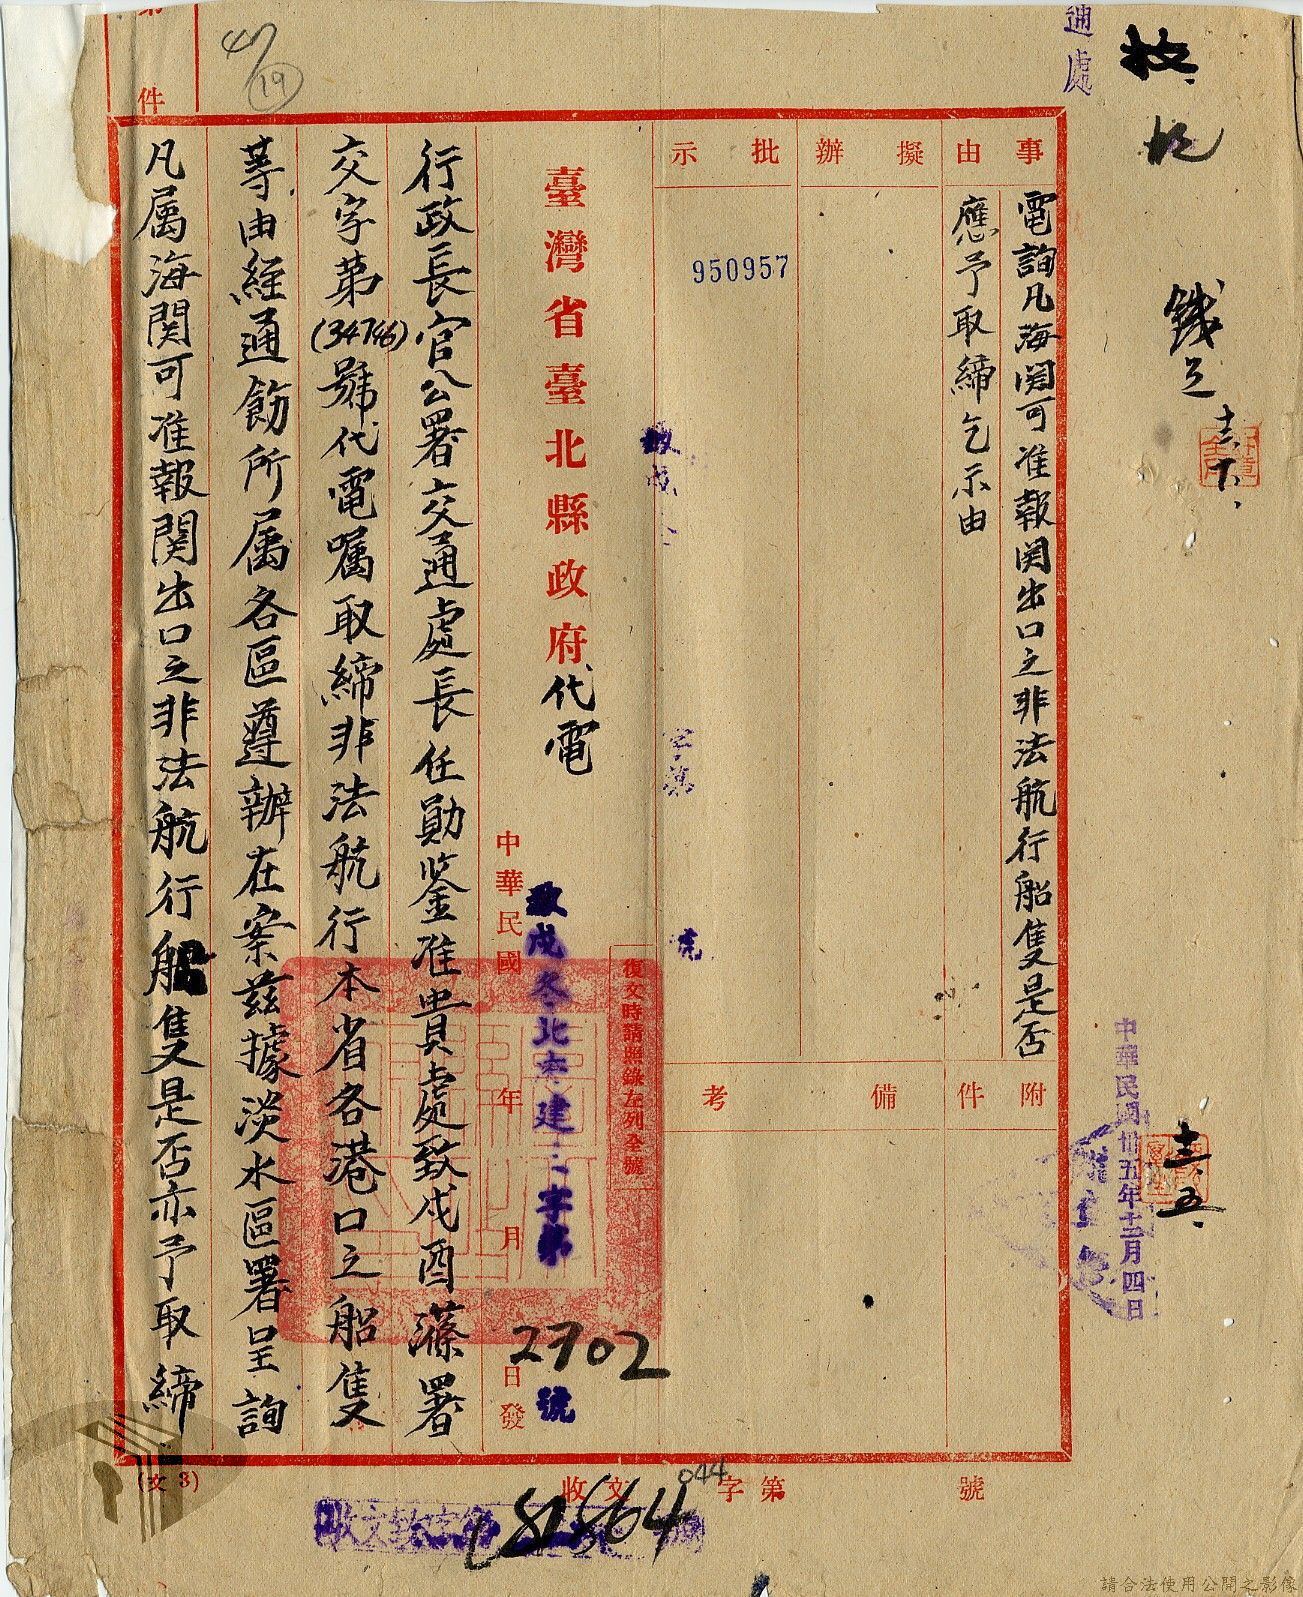 事由
電詢凡海関可准報関出口之非法航行船隻是否
應予取締乞示由
附件
擬辦
批示
備考
950957
臺灣省臺北縣政府代電
復文時請照錄左列全號
致戌冬北府建二字第2702號
中華民國 年 月 日發
行政長官公署交通處長任勛鑒准貴處致戌酉滌署
交字第(34746)號代電囑取締非法航行本省各港口之船隻
等由経通飭所属各區遵辦在案茲據淡水區署呈詢
凡属海関可准報関出口之非法航行船隻是否亦予取締
件
19
通處
十六
中華民國卅五年十二月四日
十二.五.
收文 字第 號
81564
044
(文3)
請合法使用公開之影像